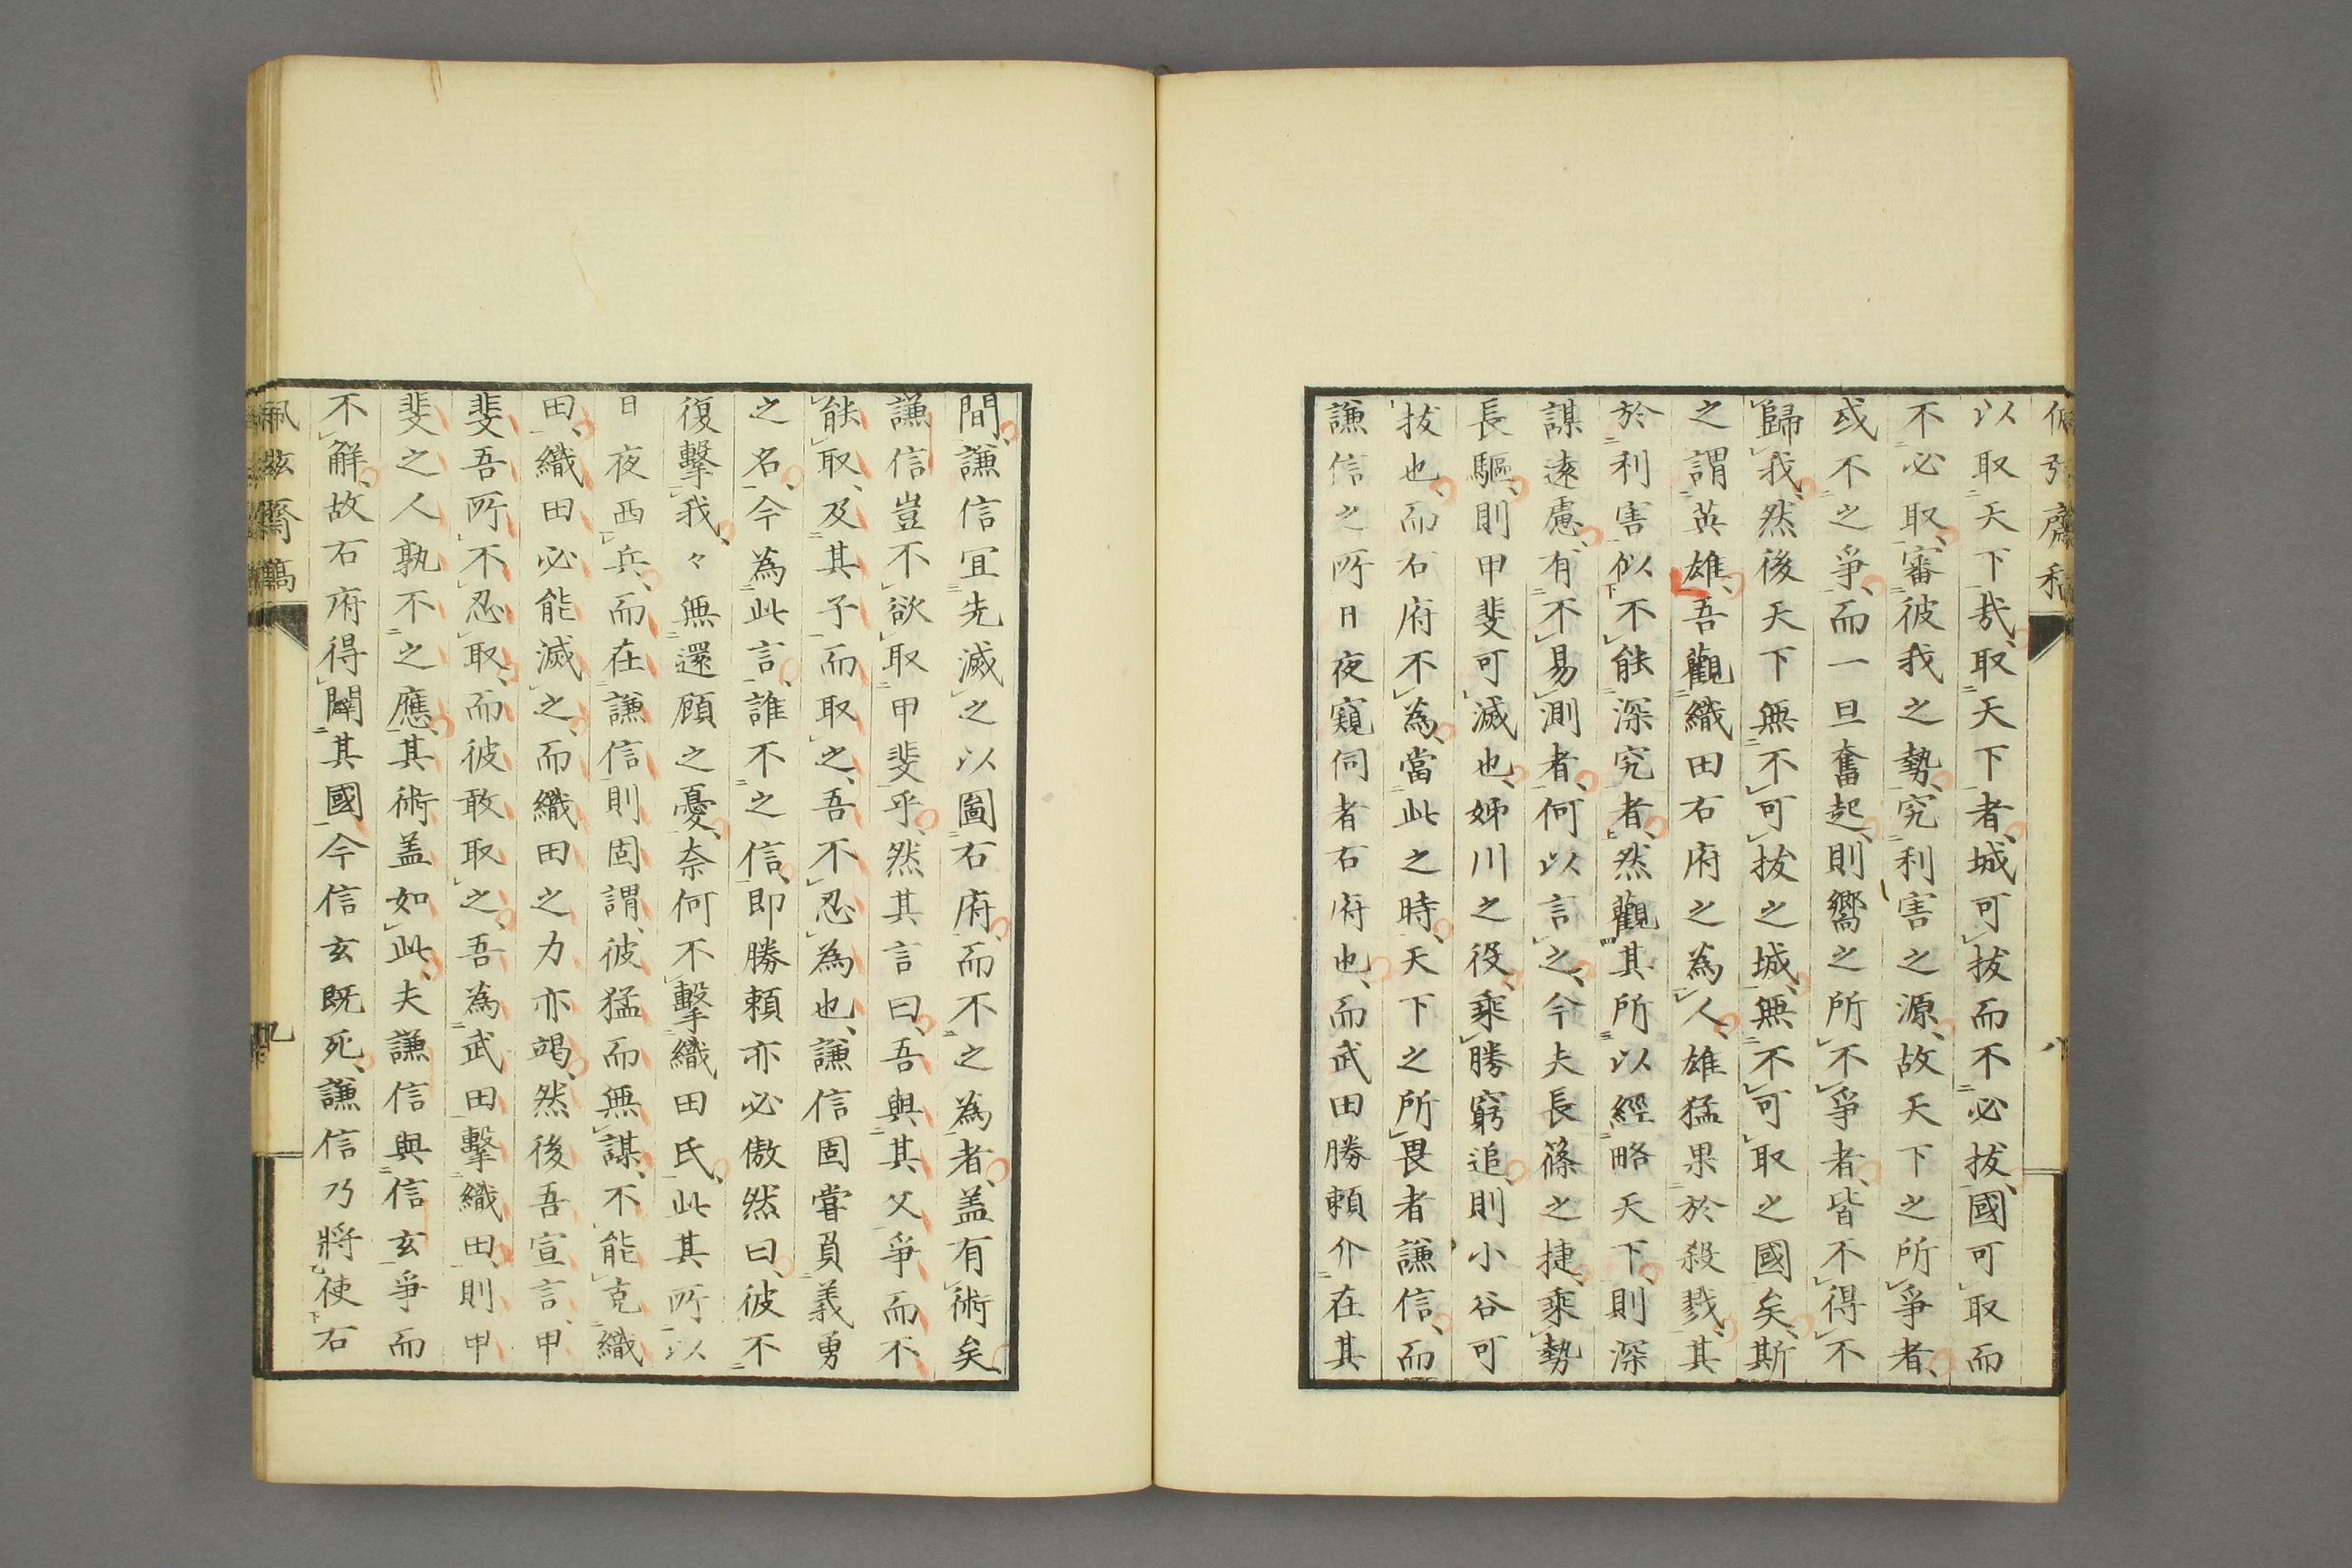 以取天下哉取天下者城可拔而不必拔國可取而
不必取審彼我之勢究利害之源故天下之所爭者
或不之爭而一旦奮起則嚮之所不爭者皆不得不
歸我然後天下無不可拔之城無不可取之國矣斯
之謂英雄吾觀織田右府之為人雄猛果於殺戮其
於利害似不能深究者然觀其所以經略天下則深
謀遠慮有不易測者何以言之今夫長篠之捷乘勢
長驅則甲斐可滅也姊川之役乘勝窮追則小谷可
拔也而右府不為當此之時天下之所畏者謙信而
謙信之所日夜窺伺者右府也而武田勝賴介在其
間謙信宜先滅之以圖右府而不之為者蓋有術矣
謙信豈不欲取甲斐乎然其言曰吾與其父爭而不
能取及其子而取之吾不忍為也謙信固嘗負義勇
之名今為此言誰不之信即勝賴亦必傲然曰彼不
復擊我々無還顧之憂奈何不擊織田氏此其所以
日夜西兵而在謙信則固謂彼猛而無謀不能克織
田織田必能滅之而織田之力亦竭然後吾宣言甲
斐吾所不忍取而彼敢取之吾為武田擊織田則甲
斐之人孰不之應其術盖如此夫謙信與信玄爭而
不解故右府得闢其國今信玄既死謙信乃將使右
佩弦齋稿
九
八